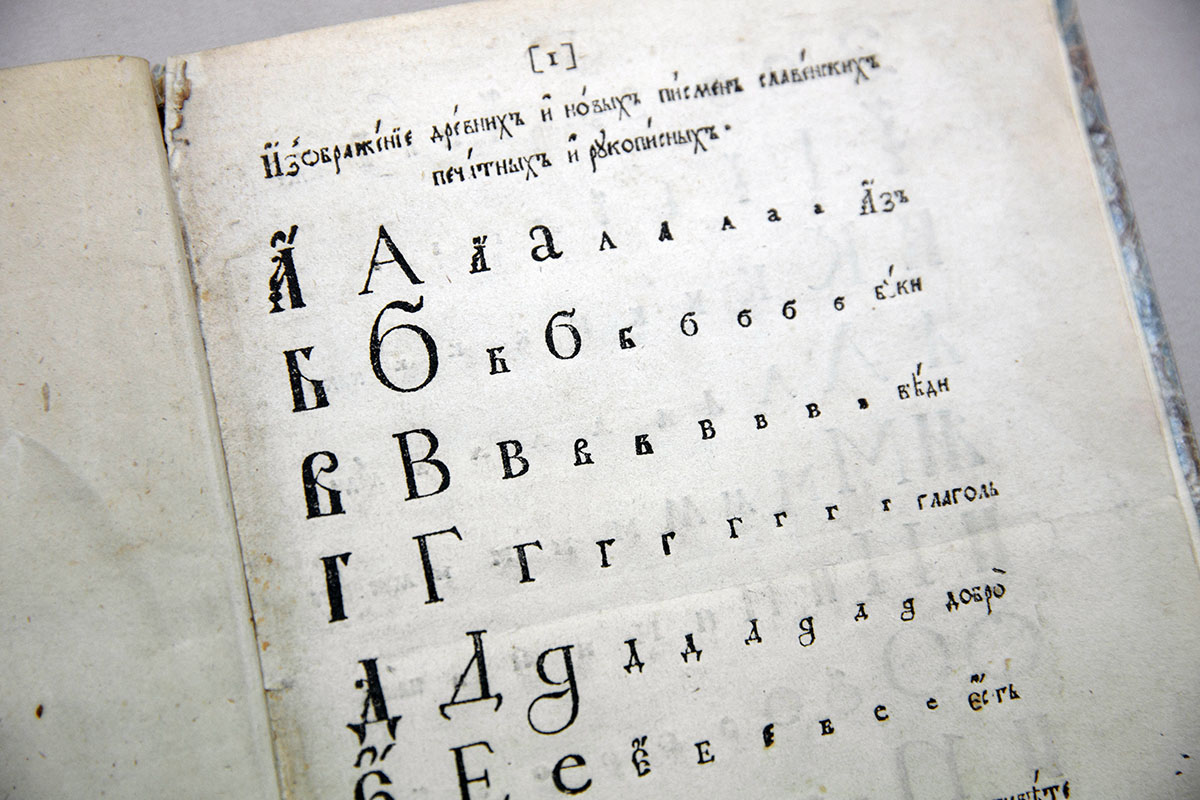 [1]
И҆зображе́нїе дре́внихъ и҆ но́выхъ пи́сменъ славе́нскихъ
печа́тныхъ и҆ рꙋкопи́сныхъ.
А҆ А а҆ а а а а а а А҆́зъ
Б Б б б б б б б б бꙋ́ки
В В В в в в в в в вѣ́ди
Г Г г г г г г г г глаголь
Д Д д д д д д д д добро̀
Е҆ Е е е҆ е е е е е є҆́сть